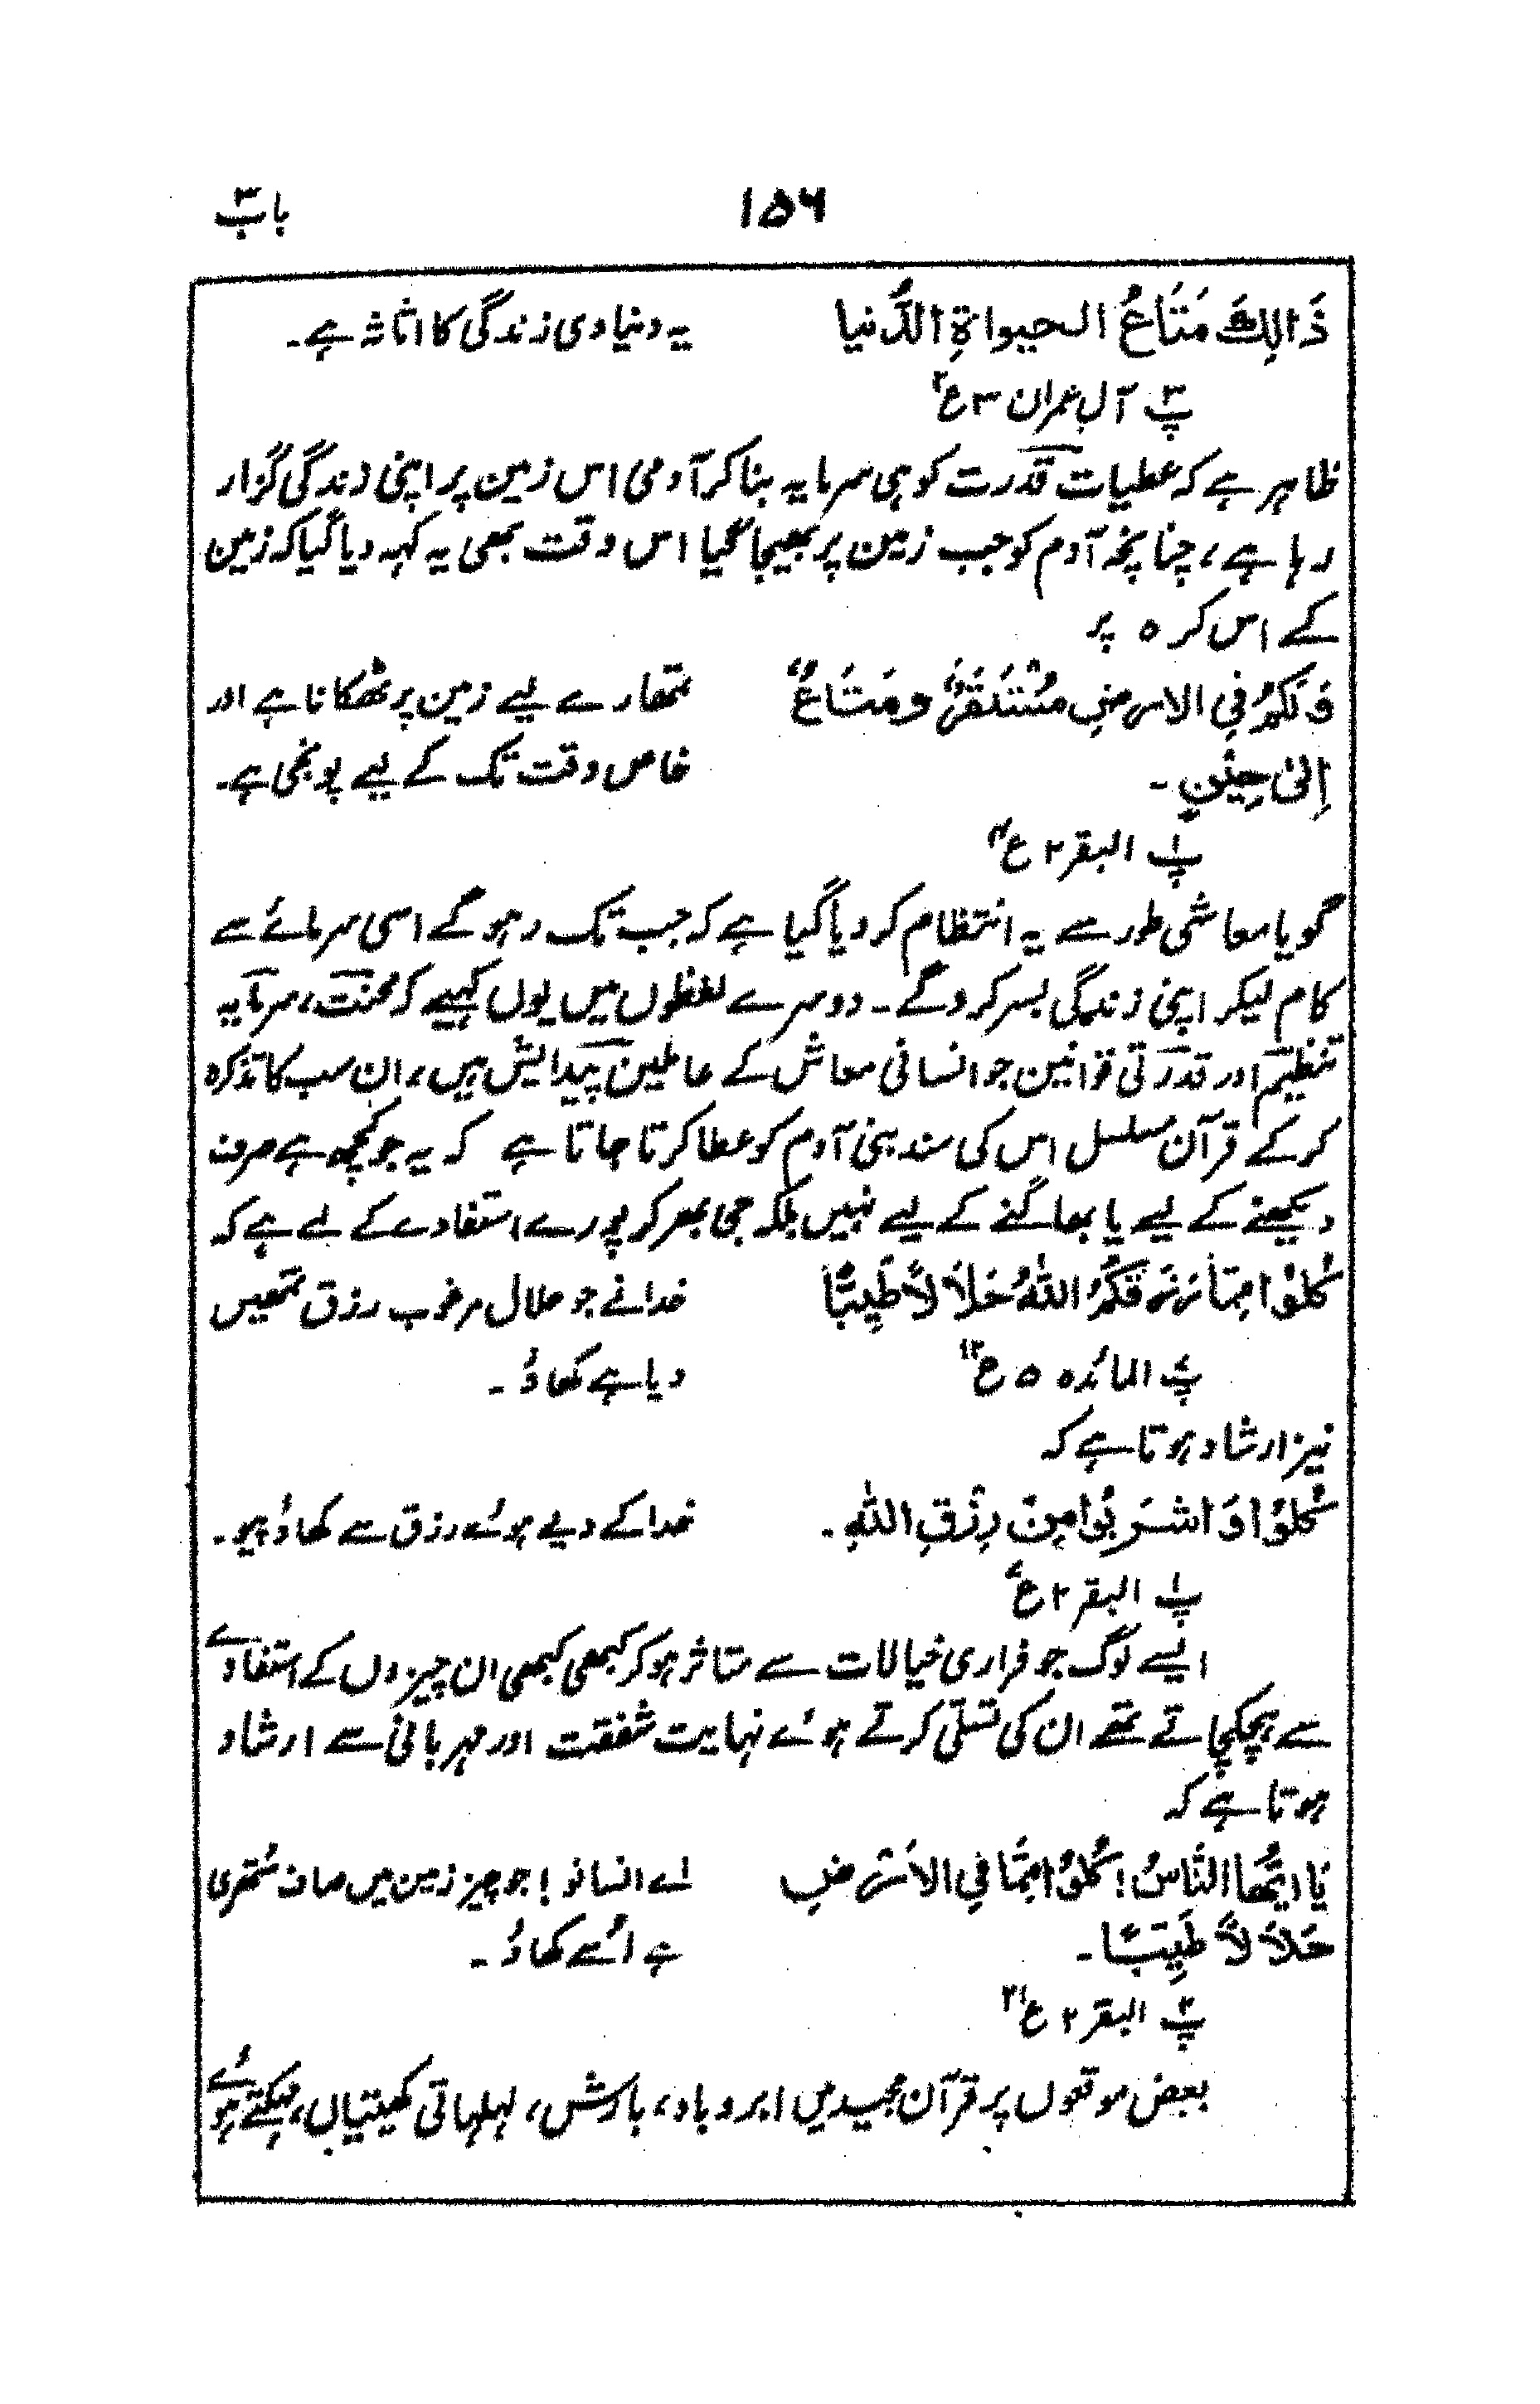 باب ۳ ۱۵۶
ذَالِكَ مَتَاعُ الحیواةِ الدُّنیا یہ دنیاوی زندگی کا اثاثہ ہے۔
پ۳ آل عمران ۳ ع۲
ظاہر ہے کہ عطیات قدرت کو ہی سرمایہ بنا کر آدمی اس زمین پر اپنی زندگی گزار
رہا ہے، چنانچہ آدم کو جب زمین پر بھیجا گیا اس وقت بھی یہ کہہ دیا گیا کہ زمین
کے اس کرہ پر
وَلَكُمْ فِي الارضِ مُسْتَقَرٌّ ومَتَاعٌ تمھارے لیے زمین پر ٹھکانا ہے اور
اِلىٰ حِيْنٍ۔ خاص وقت تک کے لیے پونجی ہے۔
پ۱ البقر ۲ ع۴
گویا معاشی طور سے یہ انتظام کر دیا گیا ہے کہ جب تک رہو گے اسی سرمائے سے
کام لیکر اپنی زندگی بسر کرو گے۔ دوسرے لفظوں میں یوں کہیے کہ محنت، سرمایہ
تنظیم اور قدرتی قوانین جو انسانی معاش کے عاملین پیدایش ہیں، ان سب کا تذکرہ
کر کے قرآن مسلسل اس کی سند بنی آدم کو عطا کرتا جاتا ہے کہ یہ جو کچھ ہے صرف
دیکھنے کے لیے یا بھاگنے کے لیے نہیں بلکہ جی بھر کر پورے استفادے کے لے ہے کہ
كُلُوْا مِمَّا رَزَقَكُمُ اللّٰهُ حَلَالًا طَيِّبًا خدا نے جو حلال مرغوب رزق تمھیں
پ۷ المائدہ ۵ ع۱۲ دیا ہے کھاؤ۔
نیز ارشاد ہوتا ہے کہ
كُلُوْا وَاشْرَبُوا مِنْ رِزْقِ اللّٰهِ۔ خدا کے دیے ہوئے رزق سے کھاؤ پیو۔
پ۱ البقر ۲ ع۷
ایسے لوگ جو فراری خیالات سے متاثر ہو کر کبھی کبھی ان چیزوں کے استفادے
سے ہچکچاتے تھے ان کی تسلّی کرتے ہوئے نہایت شفقت اور مہربانی سے ارشاد
ہوتا ہے کہ
يَا اَيُّهَا النَّاسُ! كُلُوْا مِمَّا فِي الارْضِ اے انسانو! جو چیز زمین میں صاف سُتھری
حَلَالًا طَيِّبًا۔ ہے اُسے کھاؤ۔
پ۲ البقر ۲ ع۲۱
بعض موقعوں پر قرآن مجید میں ابر و باد، بارش، لہلہاتی کھیتیاں، مہکتے ہوئے